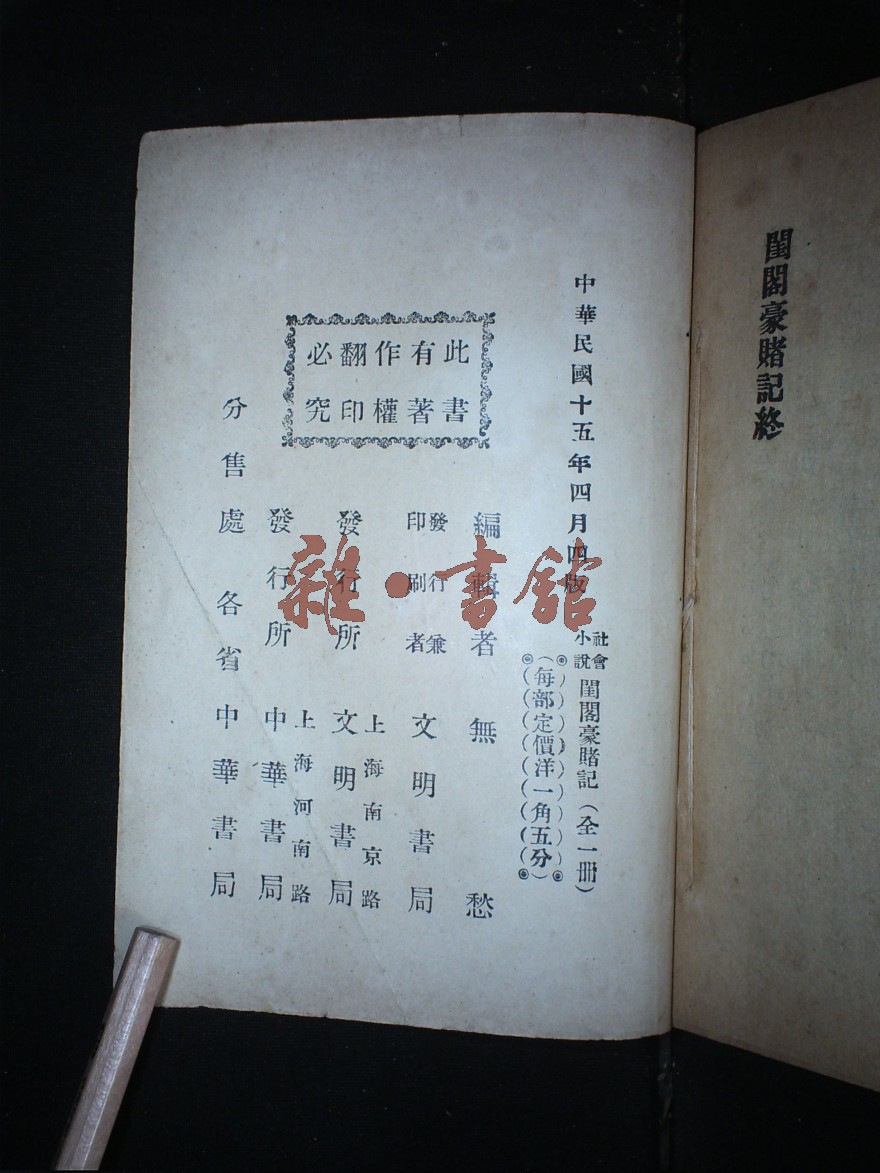 閨閣豪賭記終
中華民國十五年四月四版
社會小說 閨閣豪賭記（全一冊）
（每部定價洋一角五分）
此書有著作權翻印必究
編輯者 無愁
發行兼印刷者 文明書局
上海南京路
發行所 文明書局
上海河南路
發行所 中華書局
分售處 各省中華書局
雜·書館